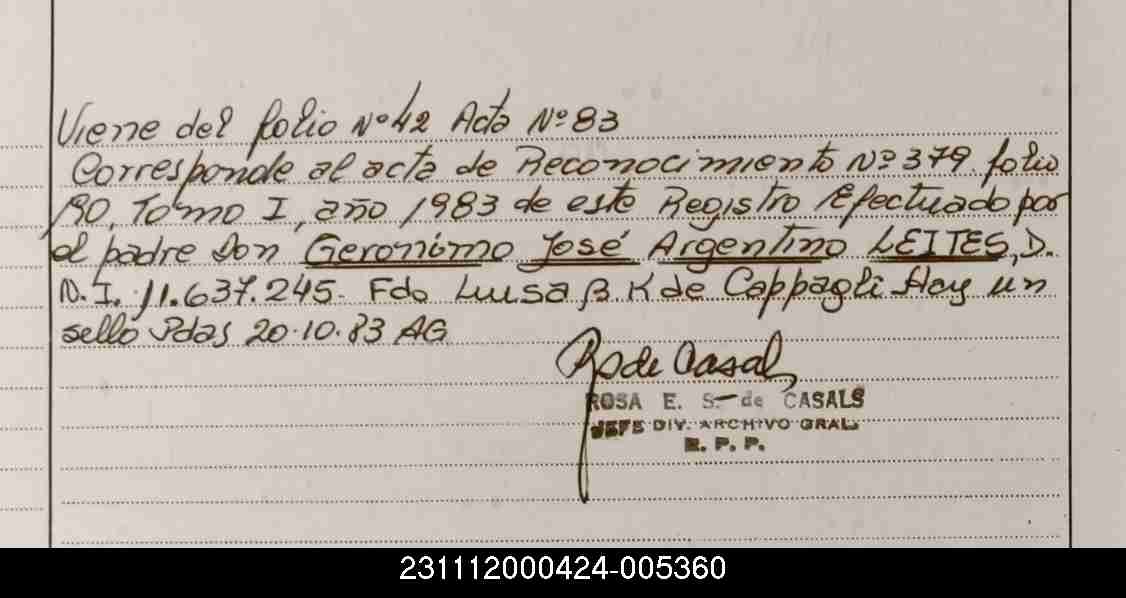 Viene del folio Nº 42 Acta Nº 83
Corresponde al acta de Reconocimiento Nº 379. folio
190, Tomo I, año 1983 de este Registro Efectuado por
el padre Don Geronimo José Argentino LEITES, D.
N. I. 11.637.245- Fdo Luisa B K de Cappagli Hay un
sello Pdas 20.10.83 AG
R S de Casals
ROSA E. S. de CASALS
JEFE DIV. ARCHIVO GRAL.
R. P. P.
231112000424-005360